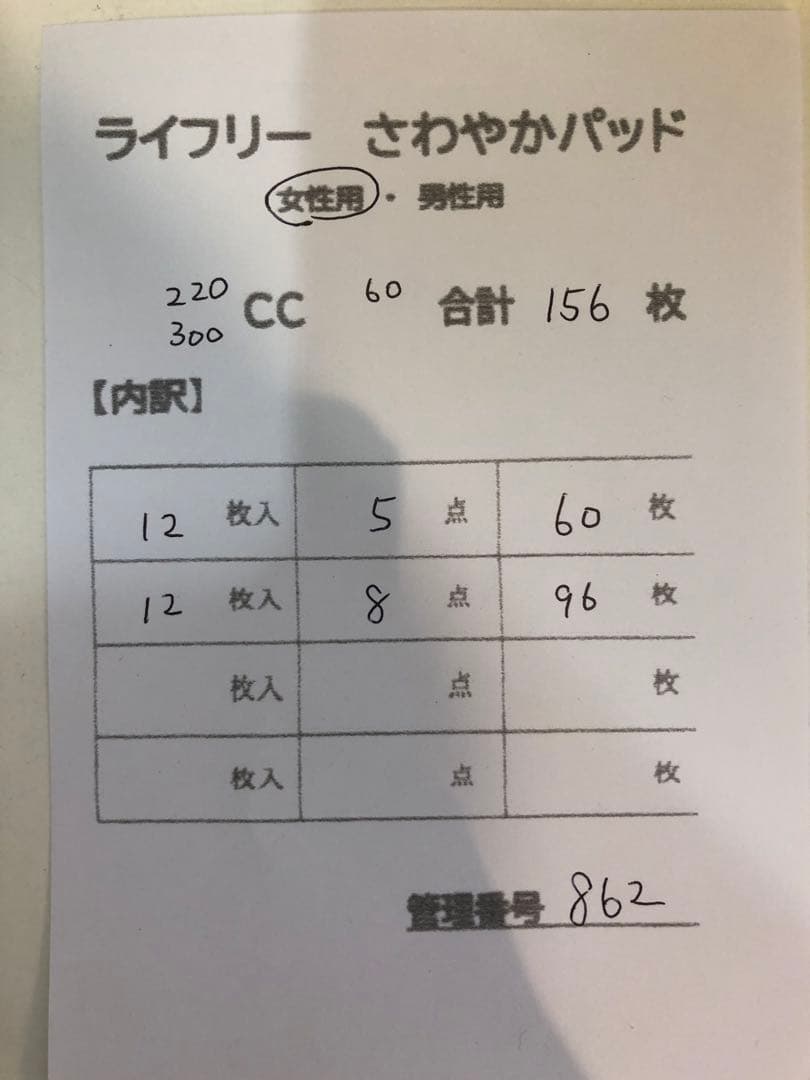 ライフリー さわやかパッド
女性用・男性用
220 CC 60 合計 156 枚
300
【内訳】
12 枚入 5 点 60 枚
12 枚入 8 点 96 枚
枚入 点 枚
枚入 点 枚
管理番号 862